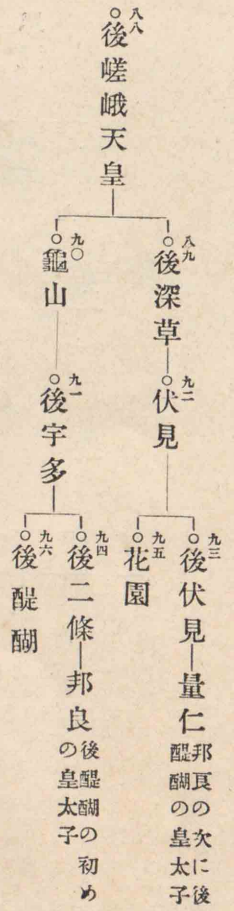 八八
○後嵯峨天皇
八九
○後深草
九二
○伏見
九三
○後伏見―量仁
邦良の次に後
醍醐の皇太子
九五
○花園
九〇
○龜山
九一
○後宇多
九四
○後二條―邦良
後醍醐の初め
の皇太子
九六
○後醍醐